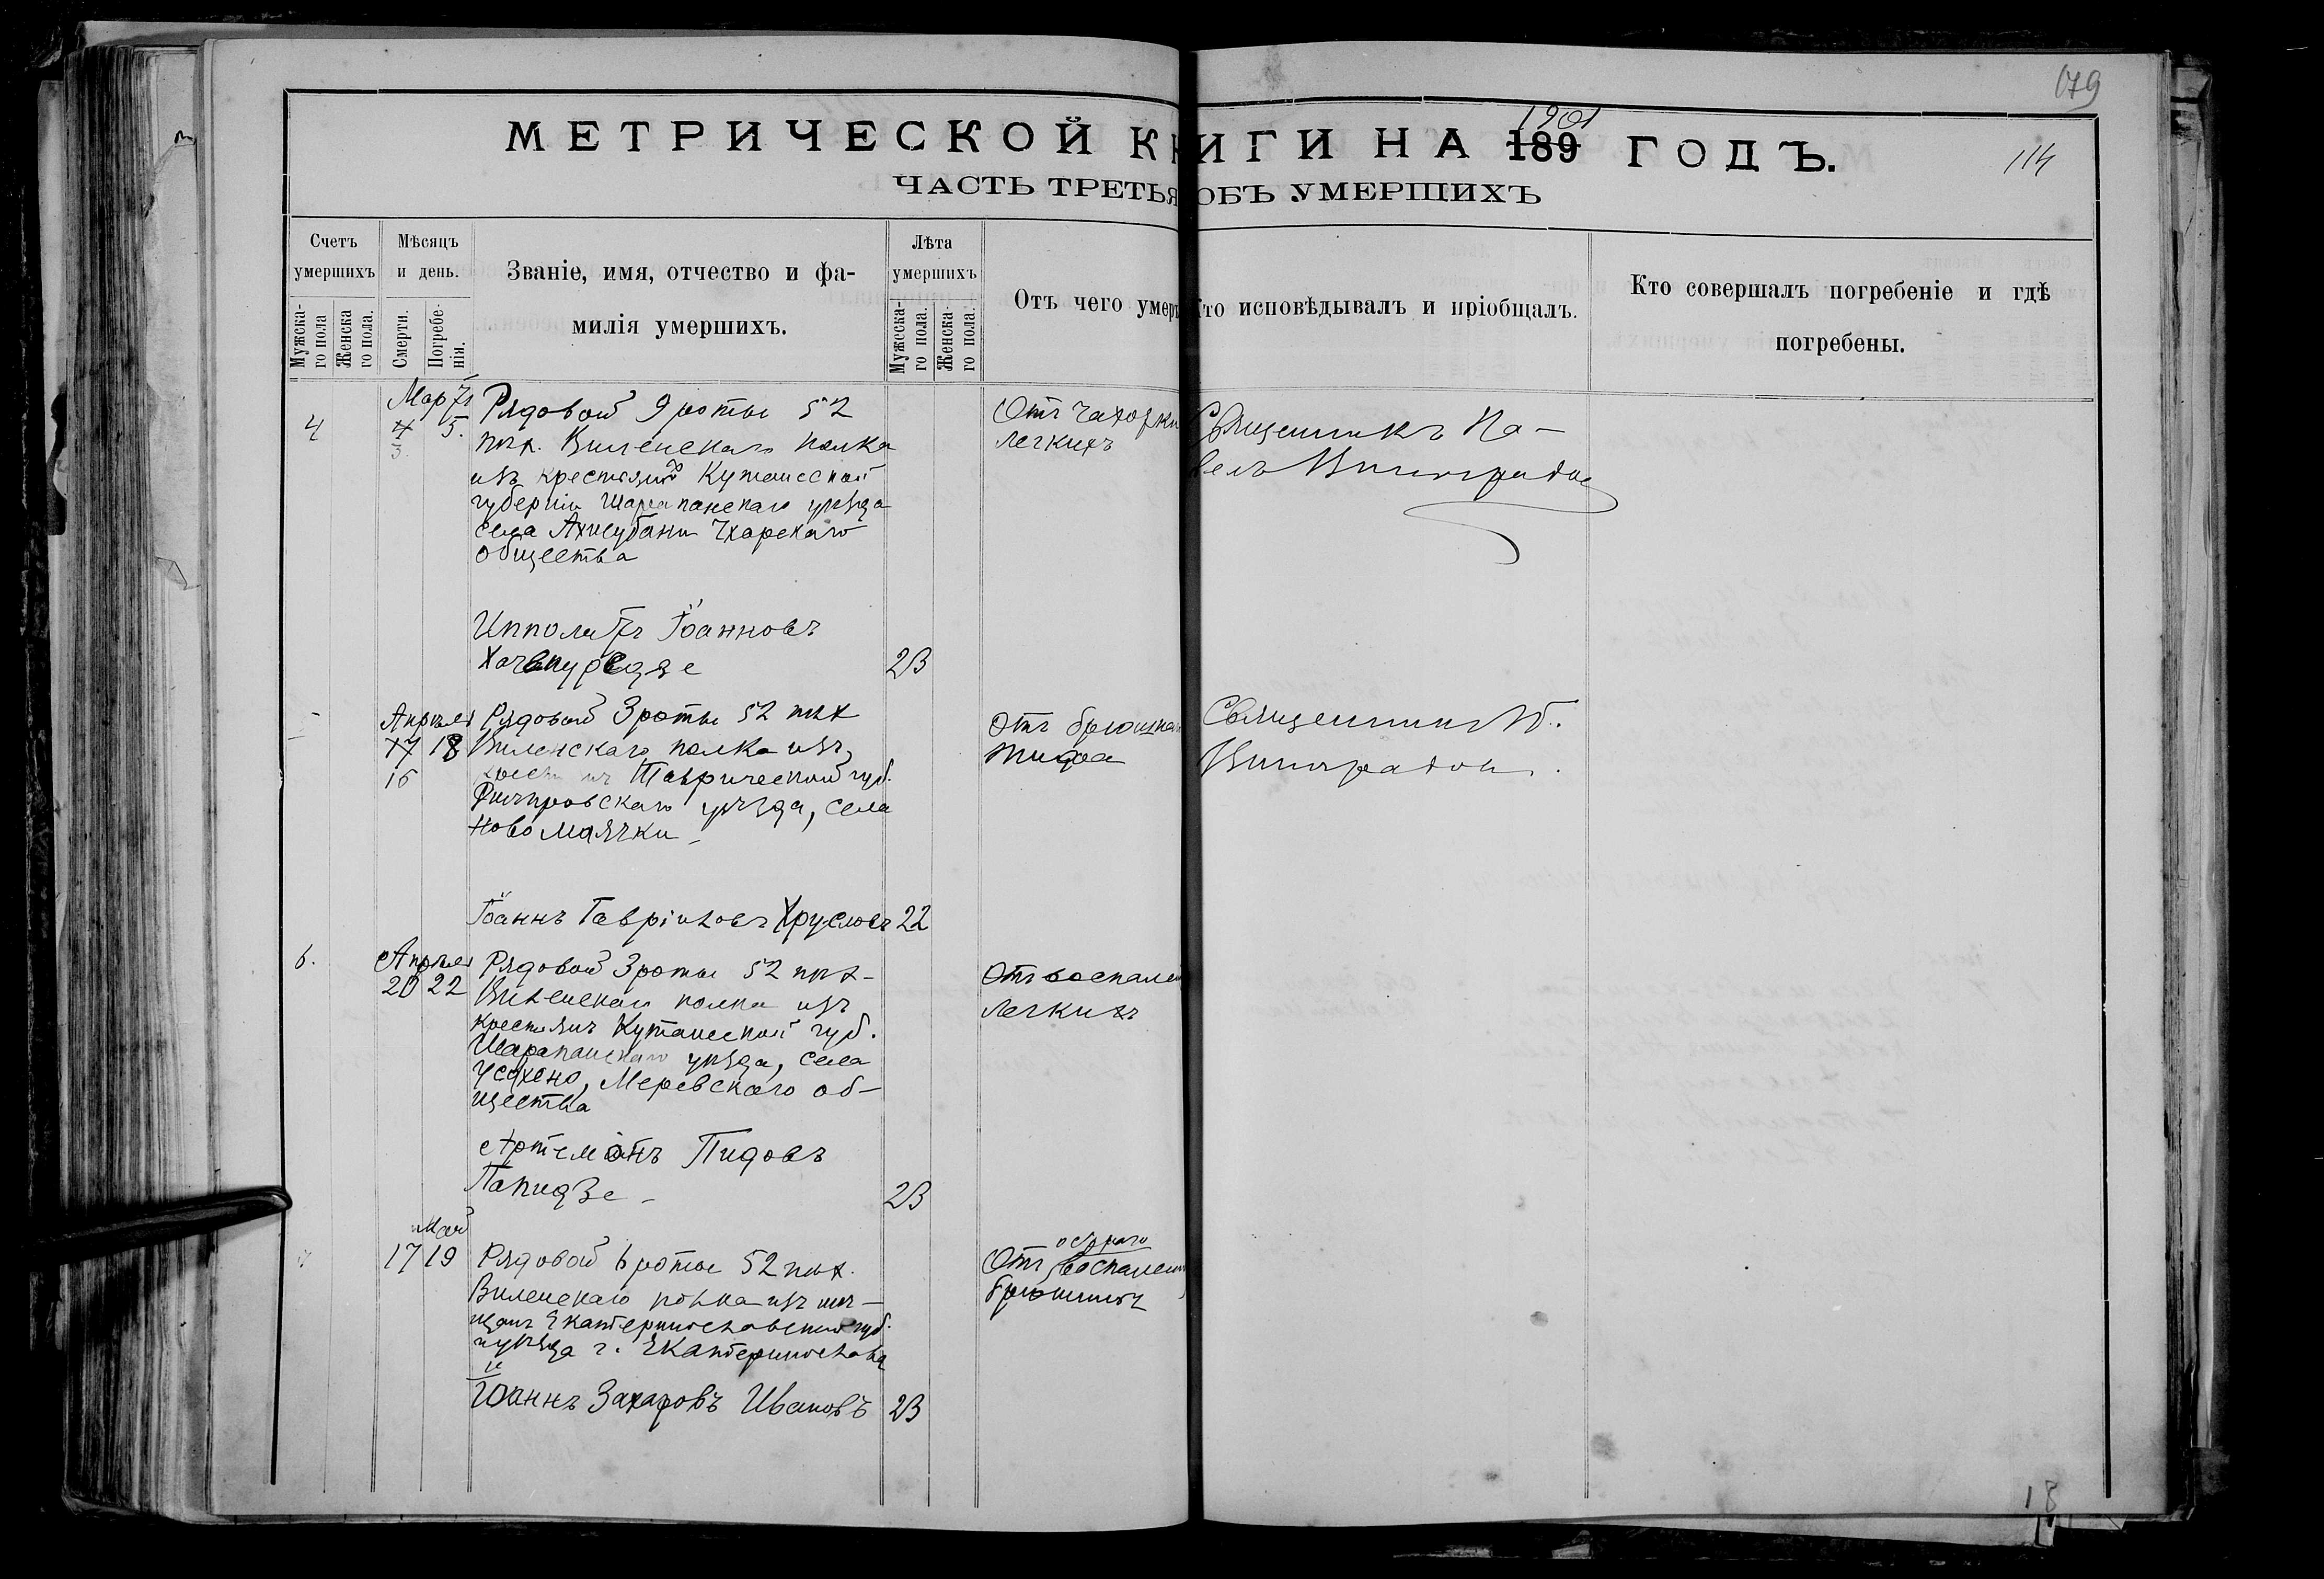 179
МЕТРИЧЕСКОЙ КНИГИ НА 189 1901 ГОДЪ.
114
ЧАСТЬ ТРЕТЬЯ ОБЪ УМЕРШИХЪ
Счетъ умершихъ
Мужска-го пола
Женска го пола.
Мѣсяцъ и день.
Смерти.
Погребе-нія.
Званіе, имя, отчество и фа-
милія умершихъ.
Лѣта умершихъ
Мужеска-го пола.
Женска-го пола.
Отъ чего умер
Кто исповѣдывалъ и пріобщалъ.
Кто совершалъ погребеніе и гдѣ
погребены.
4
Мартъ
4 5.
3.
Рядовой 9 роты 52
пѣх. Виленскаго полка
изъ крестьянъ Кутаисской
губерніи Шарапанскаго уѣзда
села Чхарскаго
общества
Ипполитъ Іоанновъ
23
Отъ чахотки
легкихъ
Священникъ Па-
велъ Виноградов
Апрѣля
17 18
16
Рядовой 3 роты 52 пѣх
Виленскаго полка изъ
Таврической губ.
Днѣпровскаго уѣзда, села
Ново Маячки
Іоаннъ Гавріиловъ Хрусловъ
22
Отъ брюшна
тифа
Священникъ П.
Виноградовъ.
6.
Апрѣля
20 22
Рядовой 3 роты 52 пѣх-
Виленскаго полка изъ
крестьянъ Кутаисской губ.
Шарапанскаго уѣзда, села
Меревскаго об-
щества
Артемонъ Пидовъ
Папидзе
23
Отъ воспален
легкихъ
Май
17 19
Рядовой 6 роты 52 пѣх.
Виленскаго полка изъ мѣ-
щанъ Екатеринославской губ.
и уѣзда г. Екатеринослава
Іоаннъ Захаровъ Ивановъ
23
остраго
Отъ воспален
брюшины
18